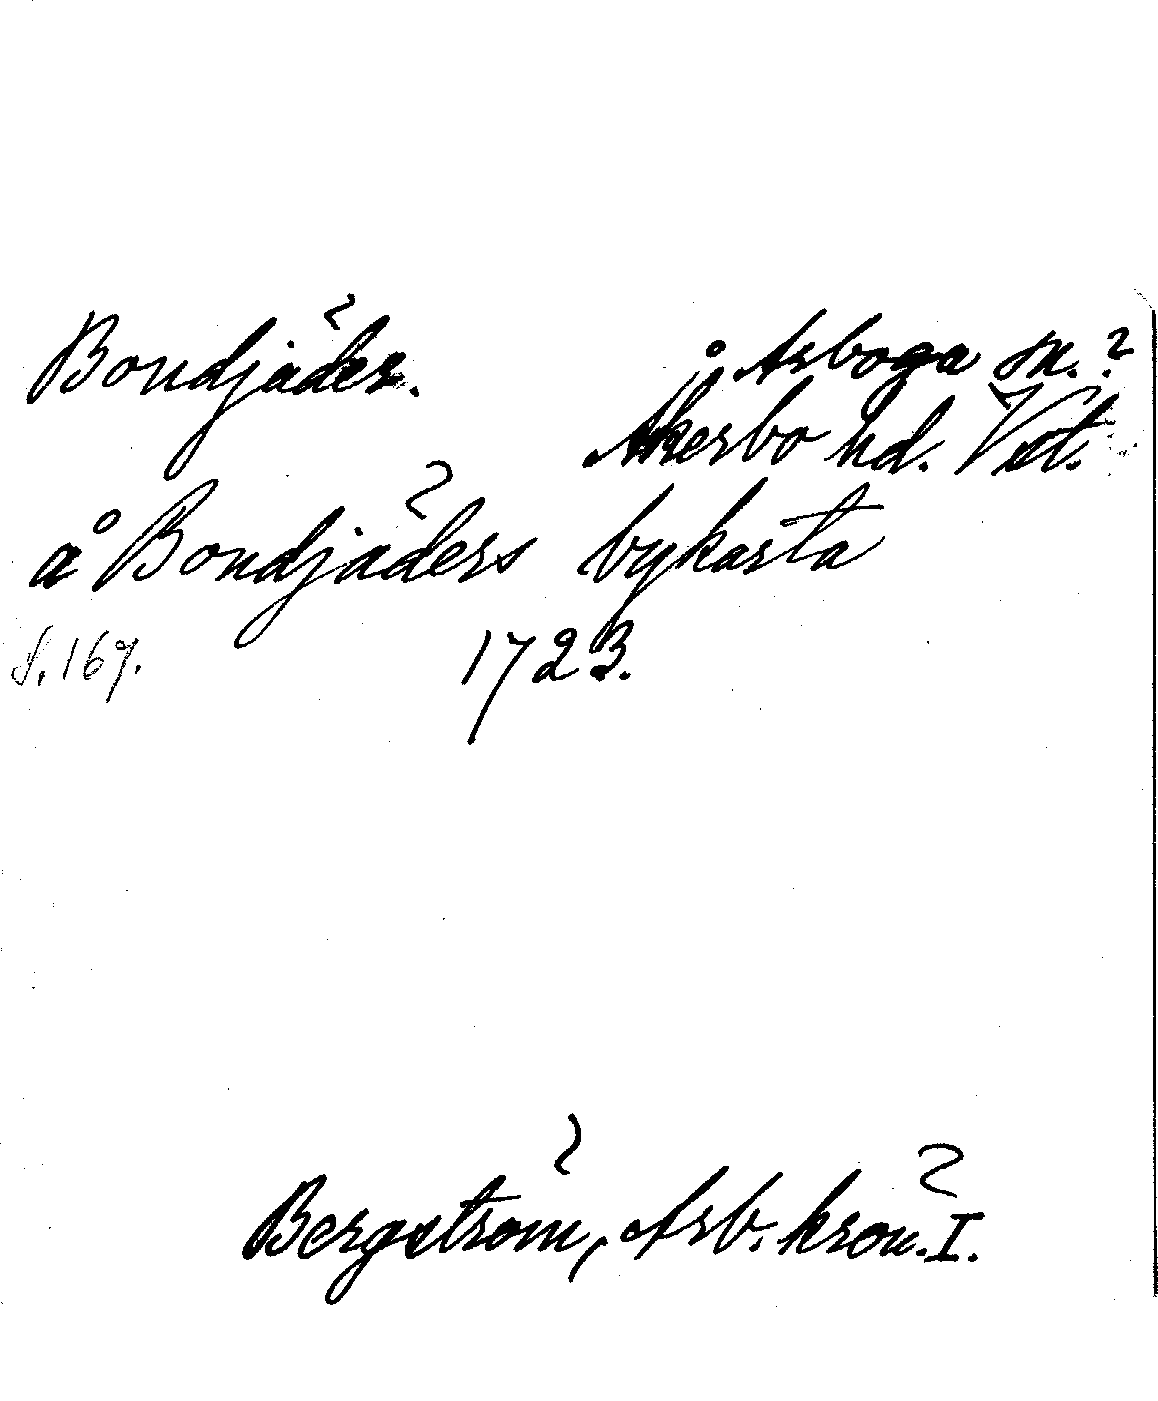 Bondjäder.
Arboga sn.?
Åkerbo hd. Vstl.
å Bondjäders bykarta
S. 167.
1723.
Bergström, Arb. krön. I.